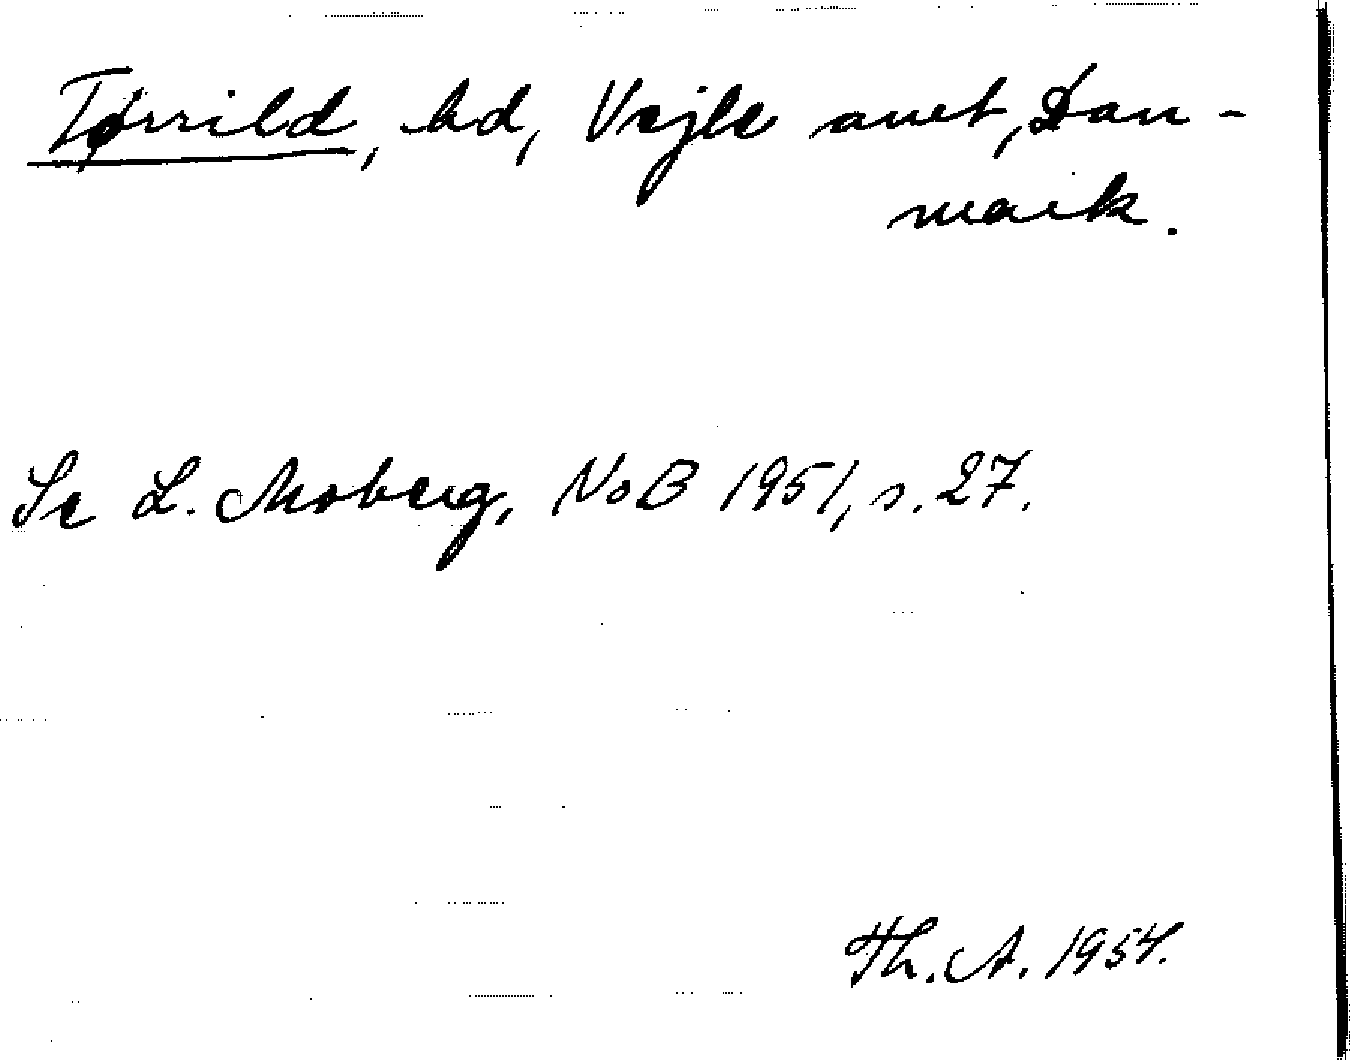 Tørrild, hd, Vejle amt, Dan-
mark.
Se L. Moberg, NoB 1951, s. 27.
Th. A. 1954.